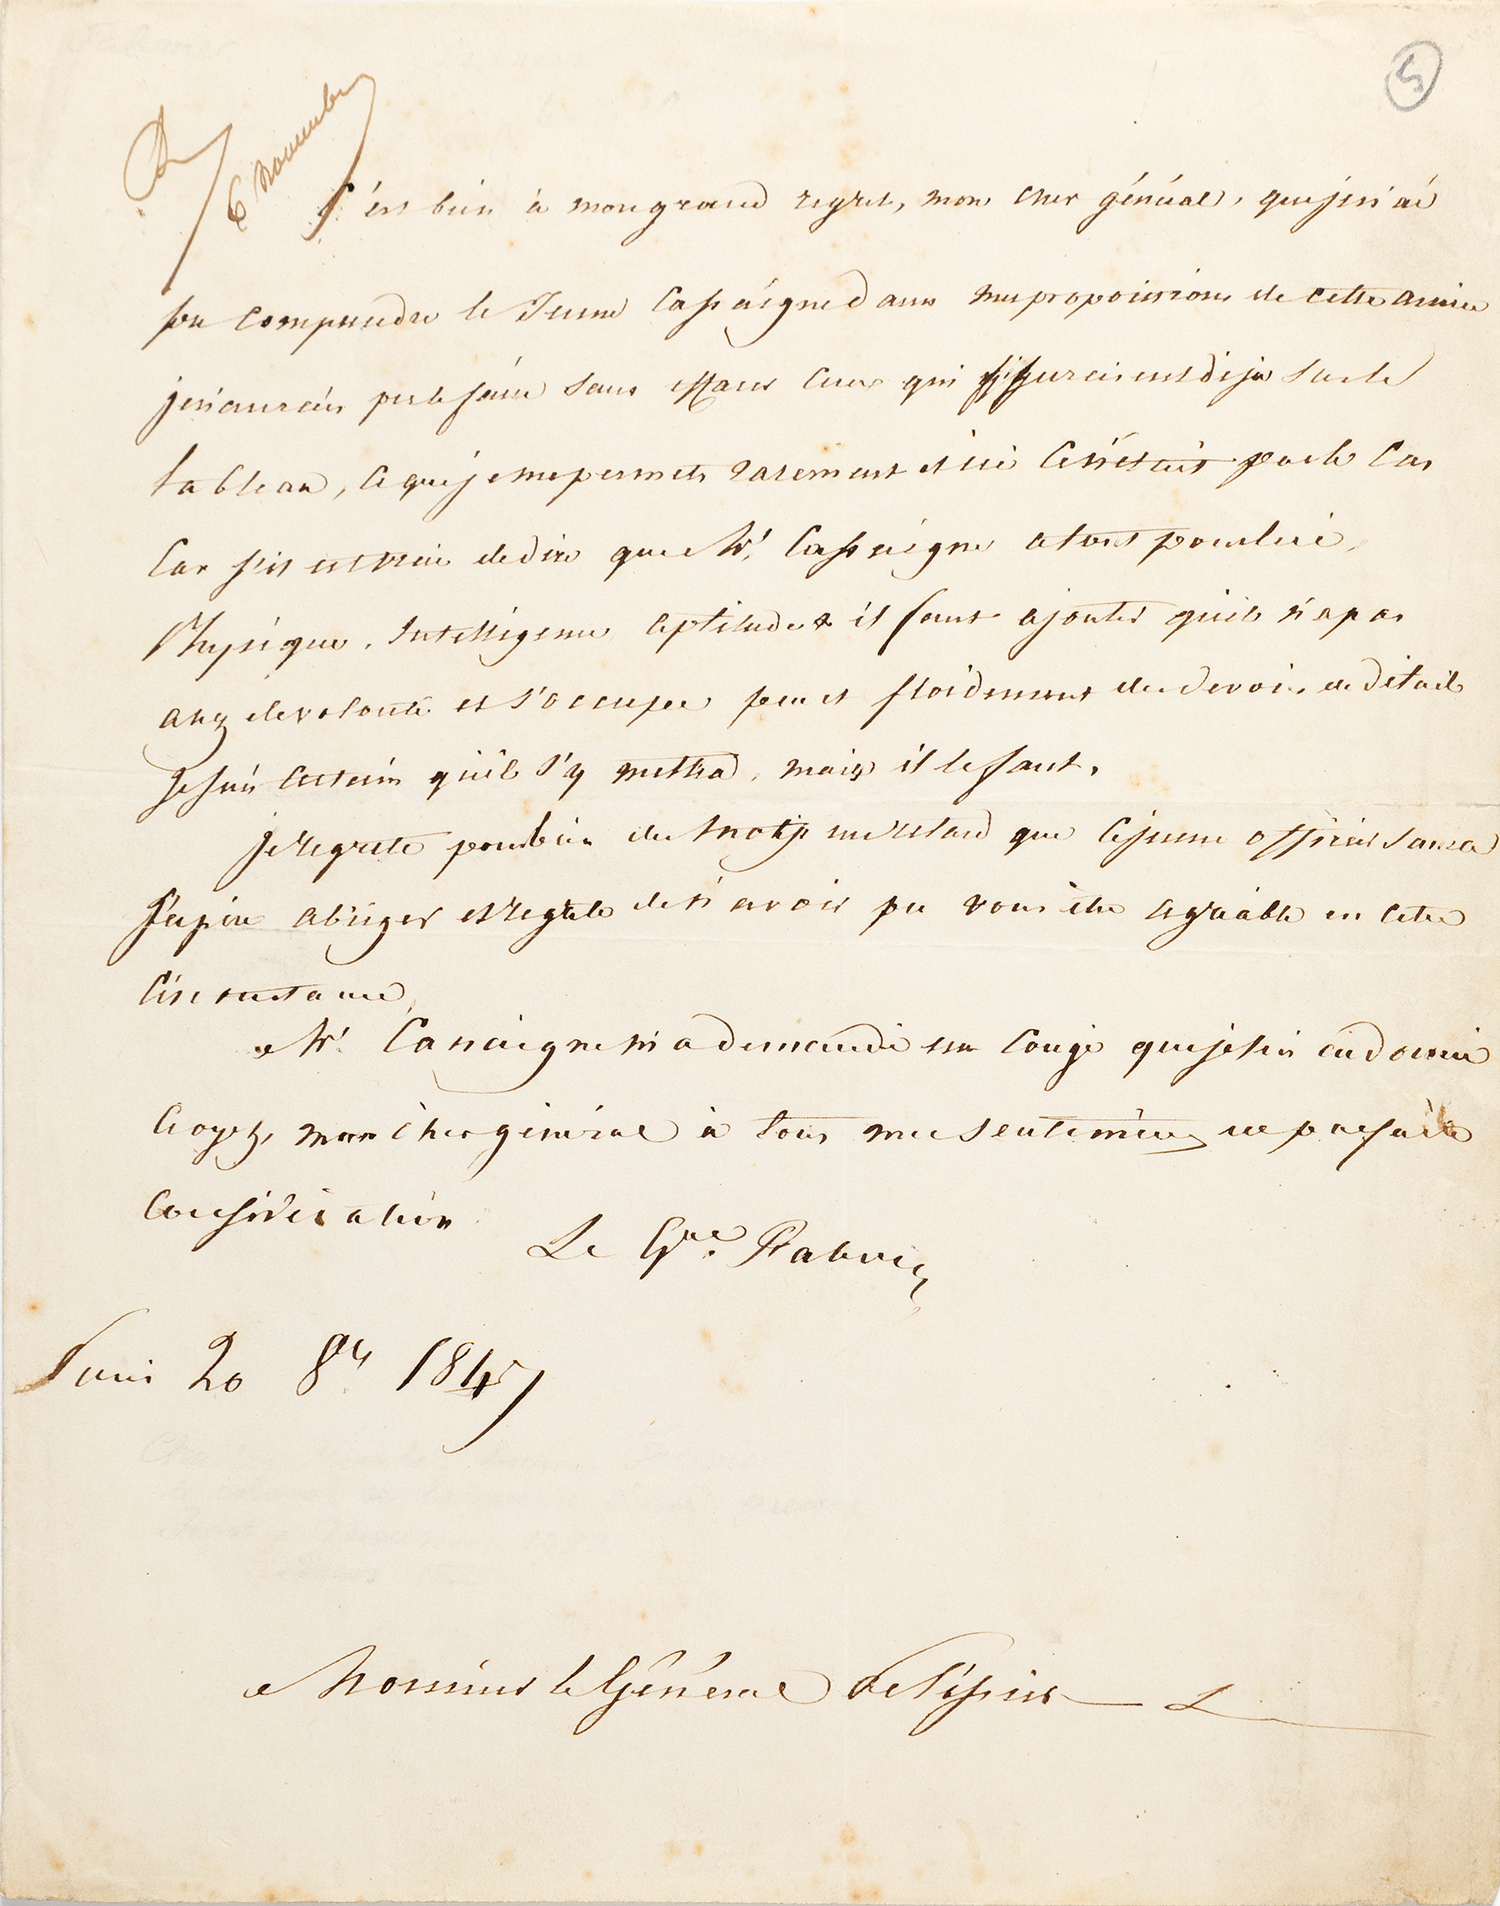 5
R/ 6 Novembre
C'est bien à mon grand regret, mon cher général, que je n'ai
pu comprendre le Jeune Cassaigne dans mes propositions de cette année
je n'aurais pu le faire sans effacer ceux qui figuraient déja sur le
tableau, ce que je me permets rarement et ici ce n'étais pas le cas
Car s'il est vrai de dire que Mr. Cassaigne a tout pour lui,
Physique, Intelligence aptitude & il faut ajouter qu'il n'a pas
assez de volonté et s'occupe peu et froidement des devoirs de détail
Je suis certain qu'il s'y mettra, mais il le faut.
je regrete pour bien des motifs un retard que ce jeune officier saura
j'espère abréger et regrete de n'avoir pu vous être agréable en cette
Circonstance,
Mr. Cassaigne m'a demandé un Congé que je lui ai donné
Croyez, mon cher général à tous mes sentiments de parfaite
Considération
Le Gal.
20 8bre 1847
Monsieur le Général Pelissier